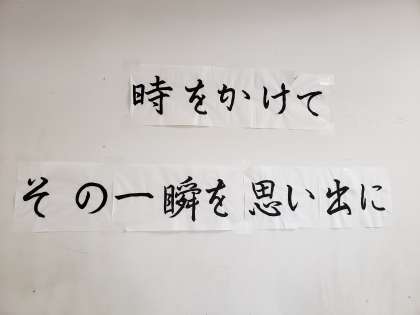 時をかけて
その一瞬を思い出に